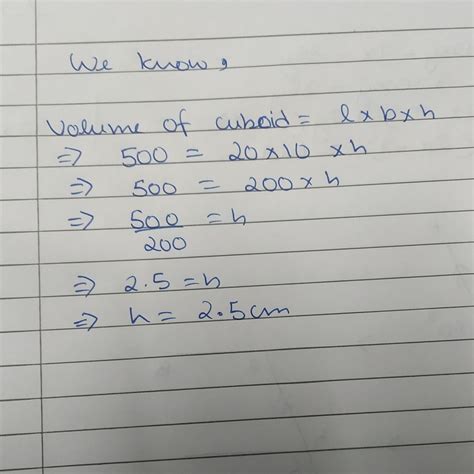 We know,
Volume of cuboid = l × b × h
⇒ 500 = 20×10 × h
⇒ 500 = 200 × h
⇒ 500/200 = h
⇒ 2.5 = h
⇒ h = 2.5cm